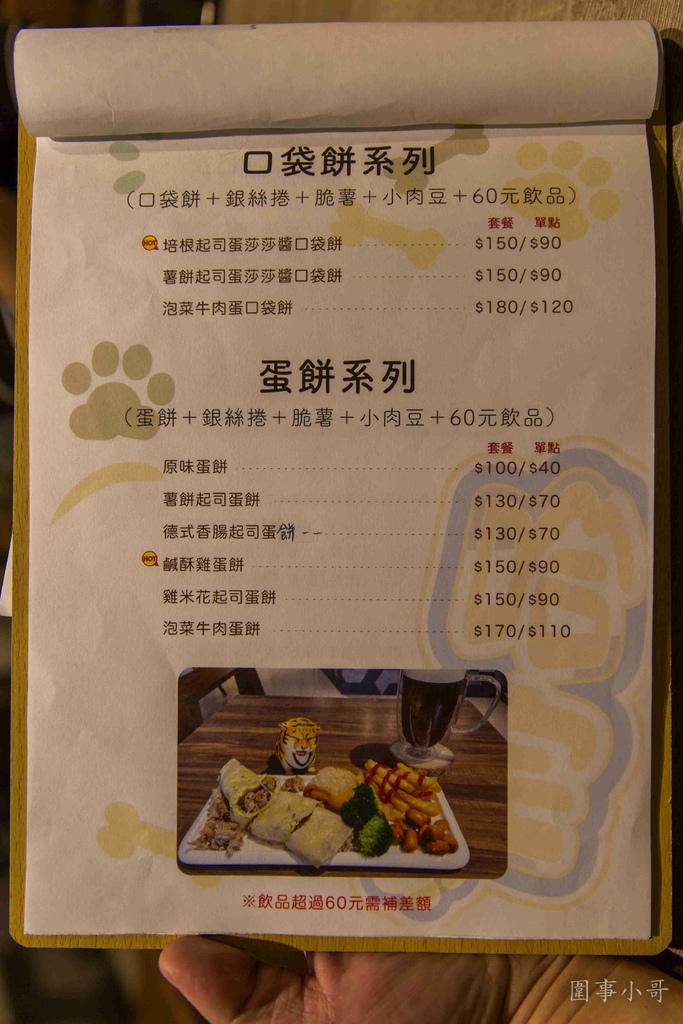 口袋餅系列
（口袋餅＋銀絲捲＋脆薯＋小肉豆＋60元飲品）
套餐 單點
HOT 培根起司蛋莎莎醬口袋餅 $150/$90
薯餅起司蛋莎莎醬口袋餅 $150/$90
泡菜牛肉蛋口袋餅 $180/$120
蛋餅系列
（蛋餅＋銀絲捲＋脆薯＋小肉豆＋60元飲品）
套餐 單點
原味蛋餅 $100/$40
薯餅起司蛋餅 $130/$70
德式香腸起司蛋餅 $130/$70
HOT 鹹酥雞蛋餅 $150/$90
雞米花起司蛋餅 $150/$90
泡菜牛肉蛋餅 $170/$110
※飲品超過60元需補差額
圍事小哥